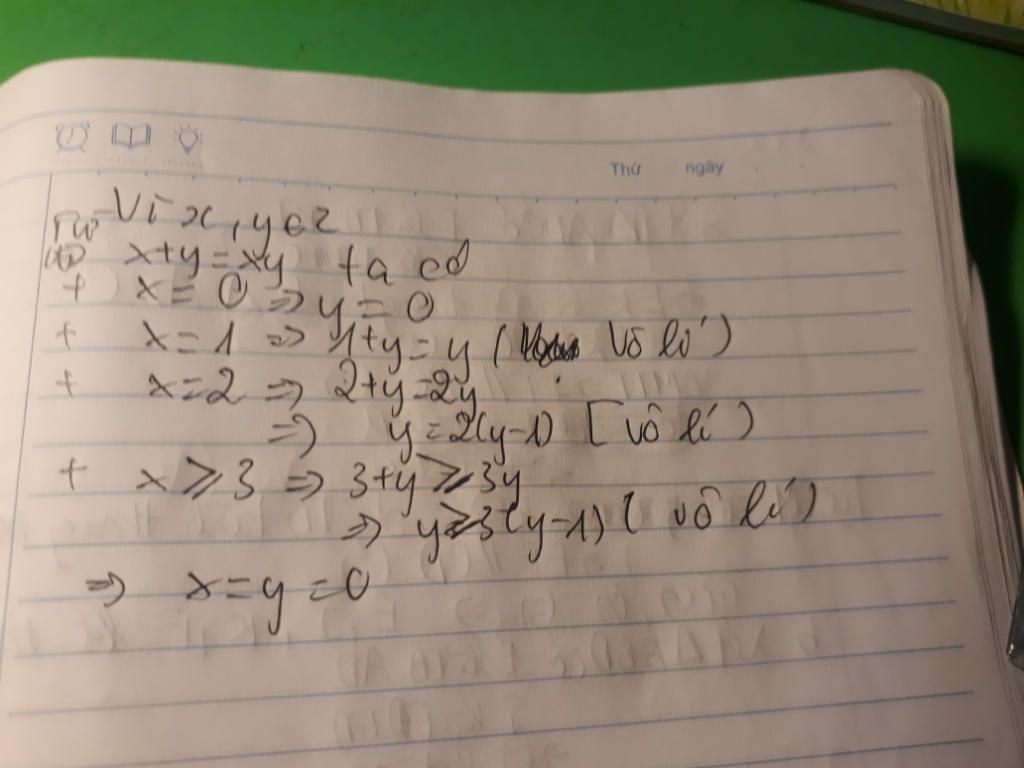 Thứ ngày
Vì x, y ∈ Z
x+y=xy ta có
+ x = 0 => y = 0
+ x = 1 => 1+y = y ( Vô lí )
+ x = 2 => 2+y = 2y
=> y = 2(y-1) [ vô lí )
+ x ⩾ 3 => 3+y ⩾ 3y
=> y ⩾ 3(y-1) ( vô lí )
=> x = y = 0